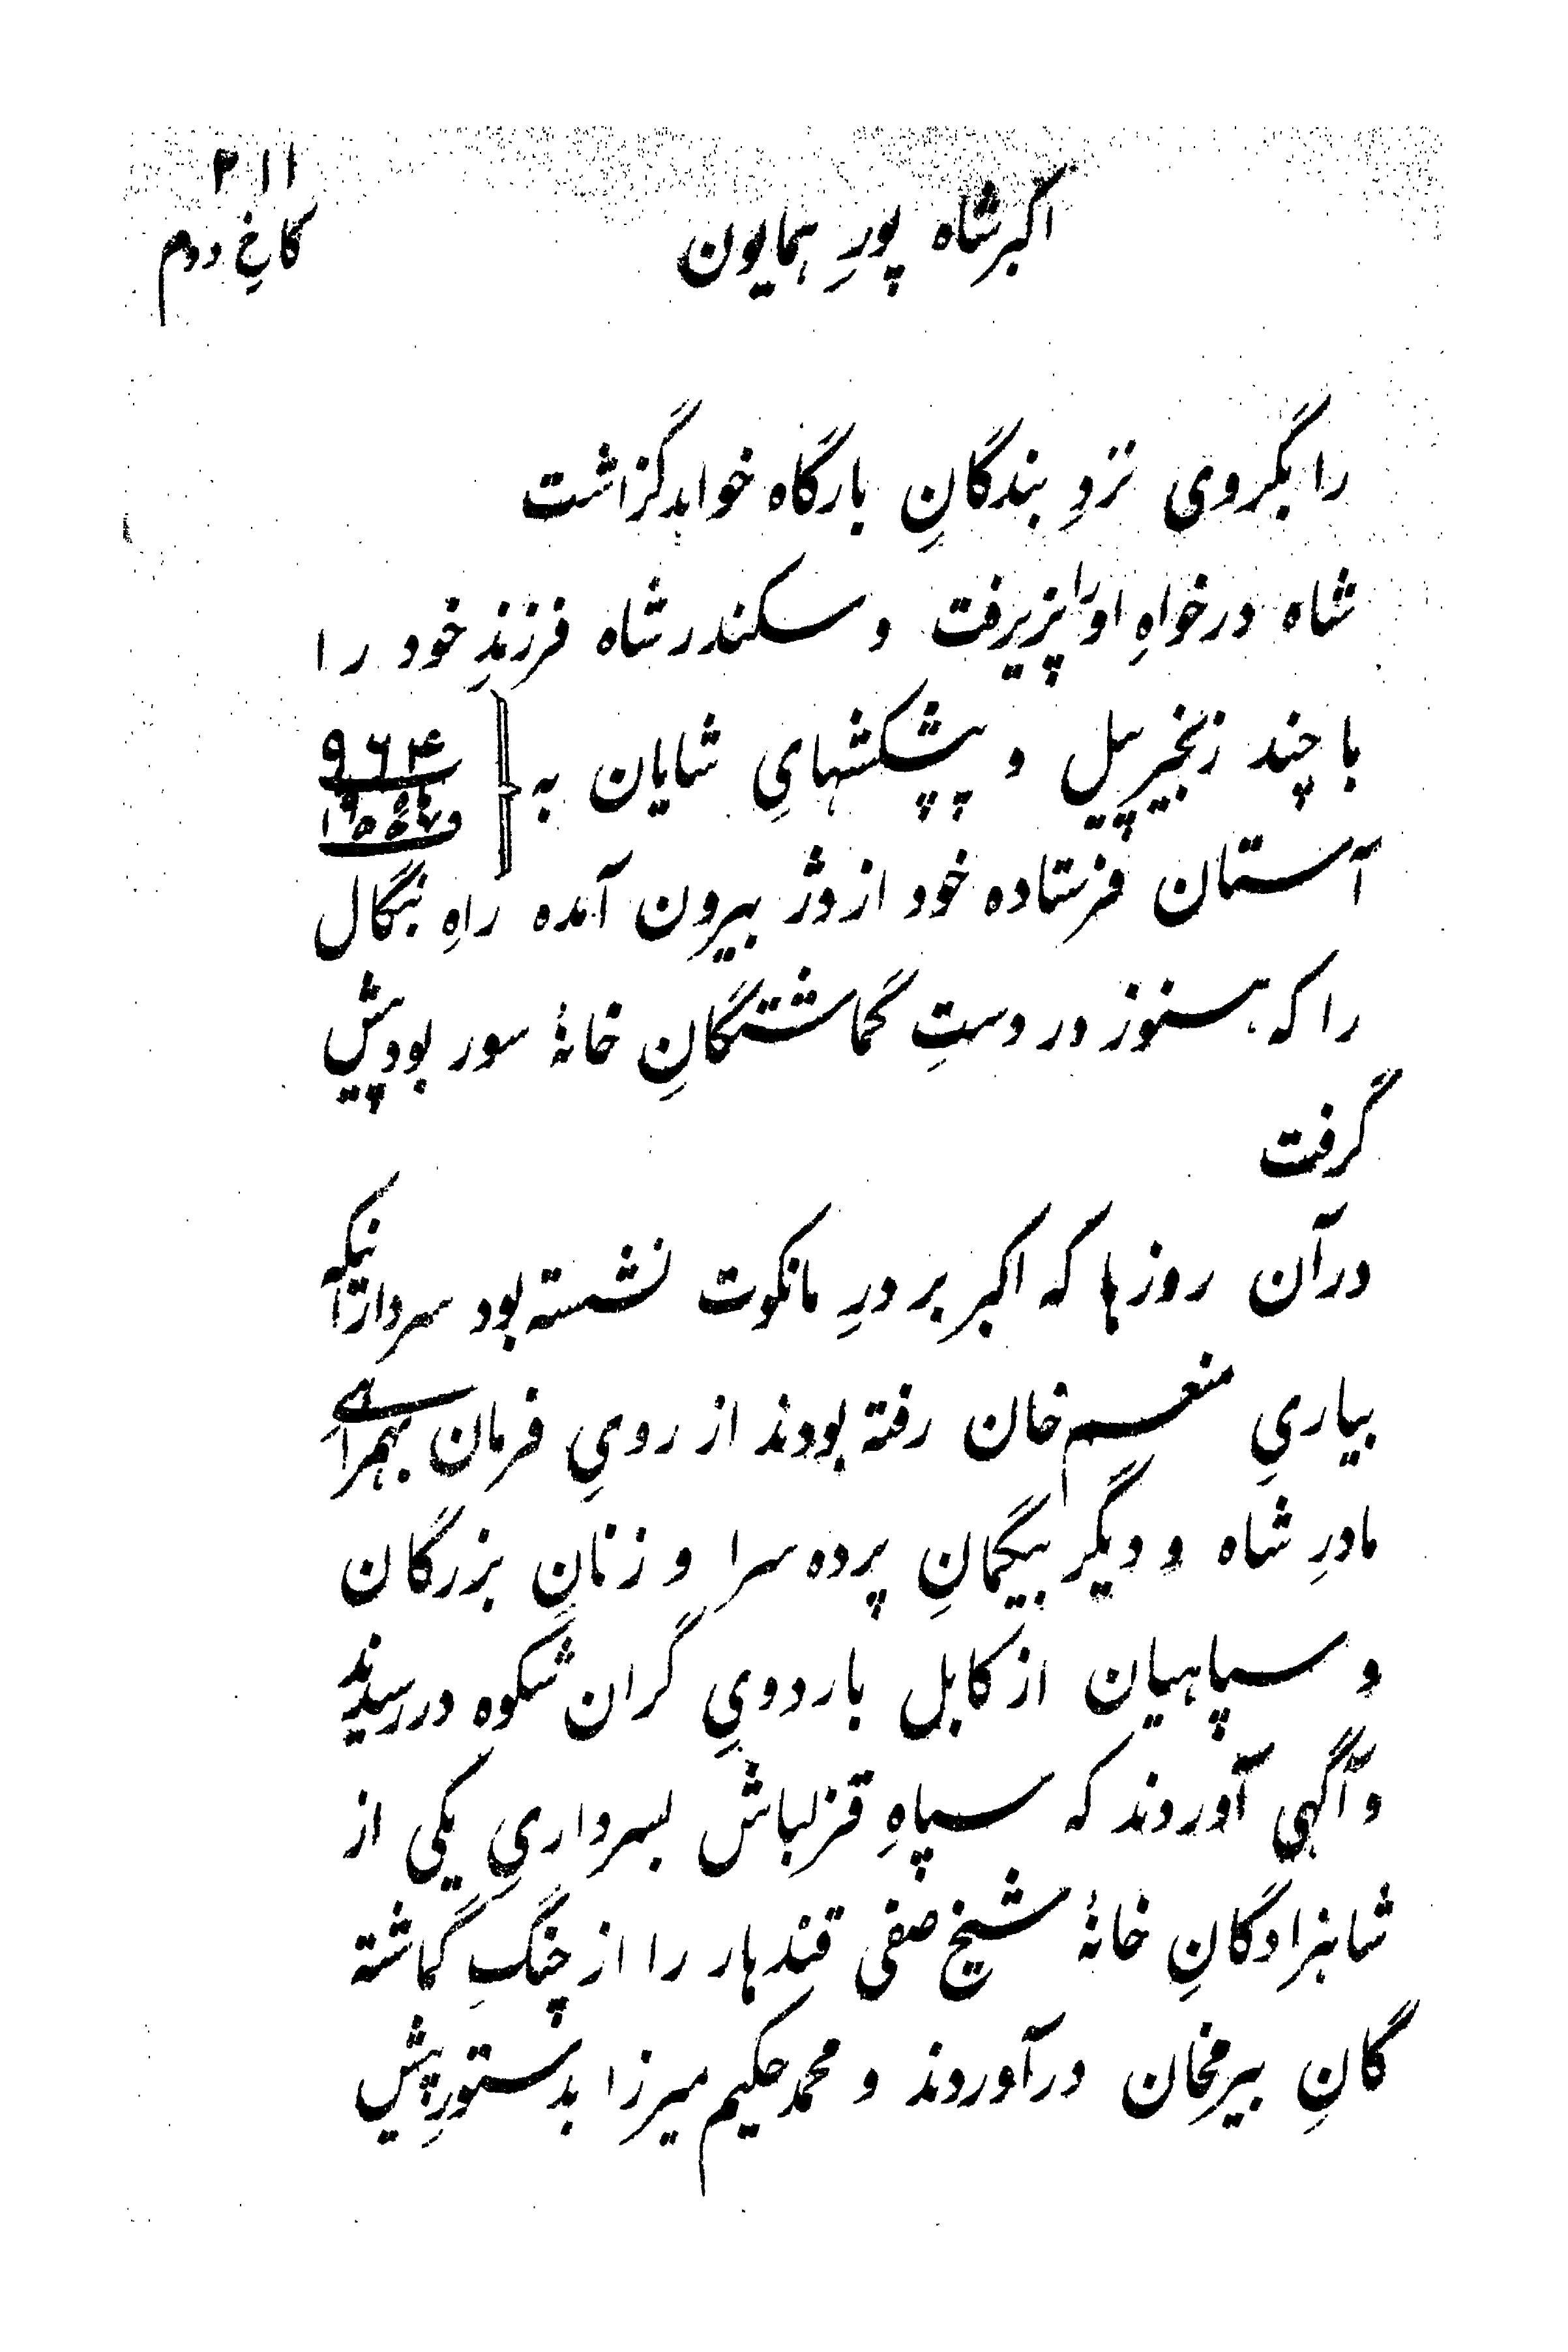 ۲۱۱
اکبر شاه پورِ همایون
کاخِ دوم
را بگروی نزدِ بندگانِ بارگاه خواهد گزاشت
شاه درخواهِ او را پزیرفت و سکندر شاه فرزندِ خود را
با چند زنجیر پیل و پیشکشهایِ شایان به
۹۶۴
آستان فرستاده خود از دژ بیرون آمده راهِ بنگال
را که هنوز در دستِ گماشتگانِ خانهٔ سور بود پیش
گرفت
در آن روزها که اکبر بر درِ مانکوت نشسته بود سردارانیکه
بیاریِ منعم خان رفته بودند از رویِ فرمان بهمراهیِ
مادرِ شاه و دیگر بیگمانِ پرده سرا و زنانِ بزرگان
و سپاهیان از کابل باردویِ گران شکوه در رسیدند
و آگهی آوردند که سپاهِ قزلباش بسرداریِ یکی از
شاهزادگانِ خانهٔ شیخ صفی قندهار را از چنگِ گماشته
گانِ بیرمخان در آوردند و محمد حکیم میرزا بدستورِ پیش